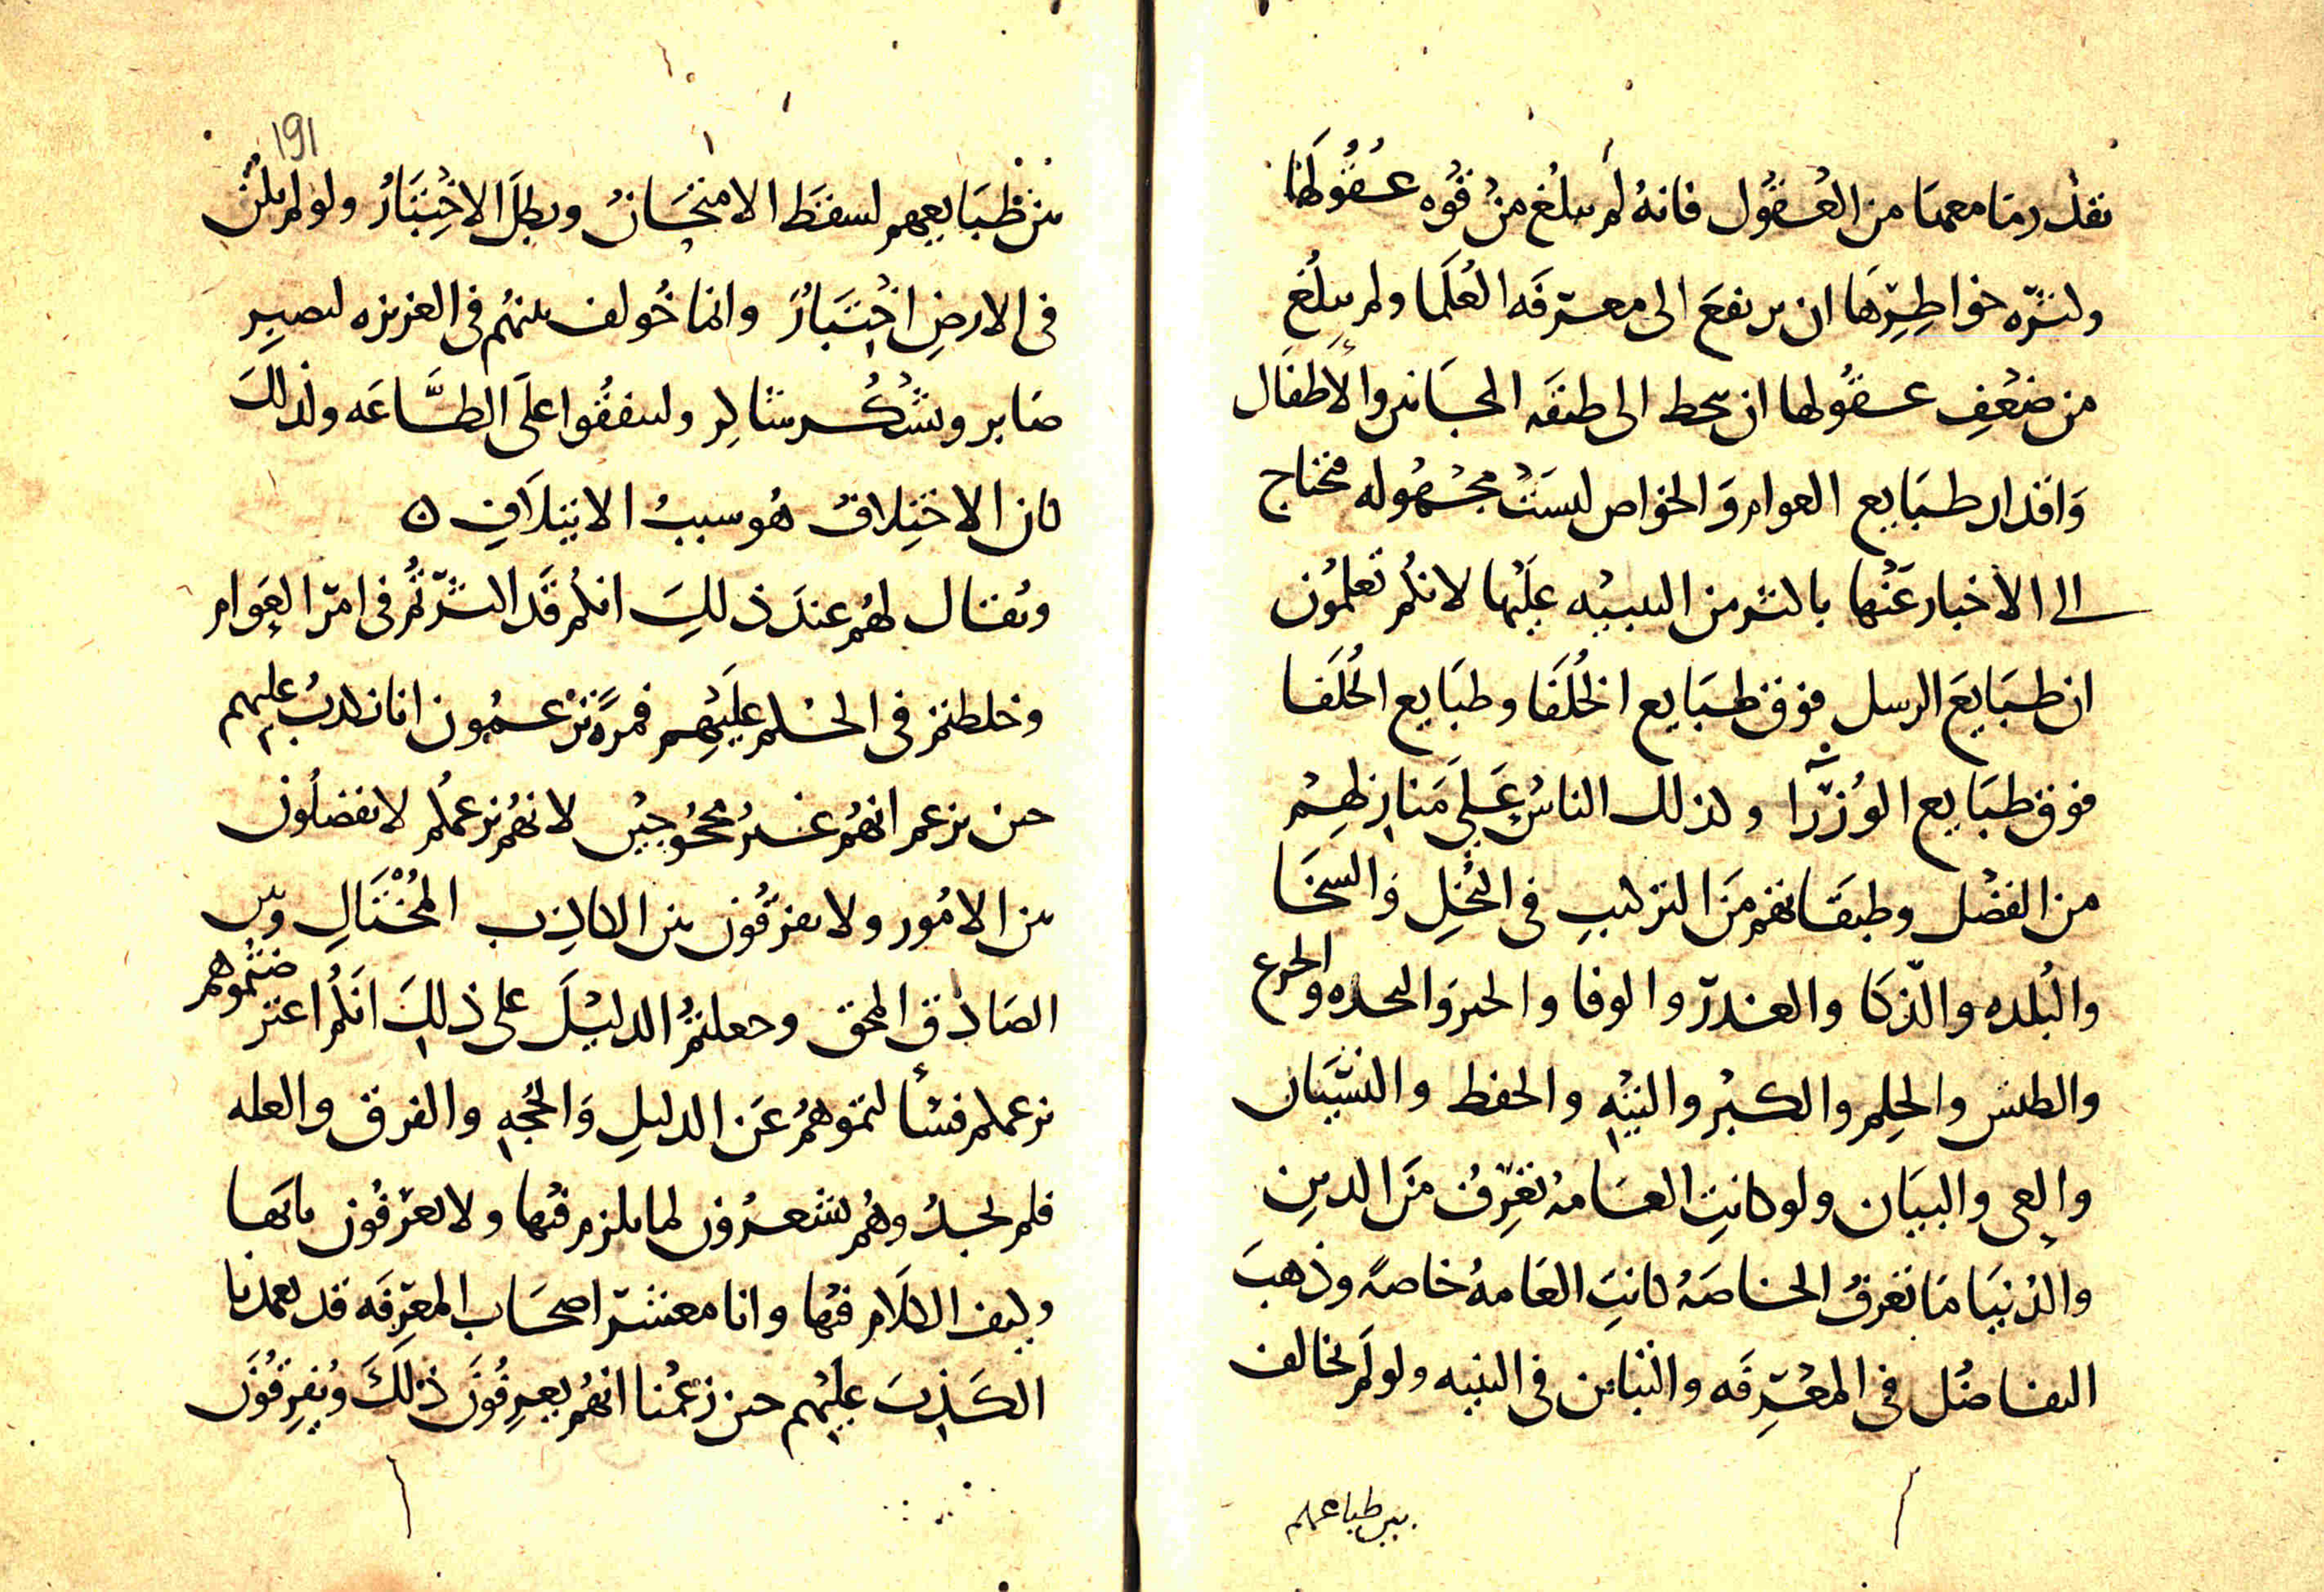 بقدر ما معها من العقول فانه لم يبلغ من قوه عقُولها
وكثرّه خواطِرّها ان يرتفعَ الى معرّفَه العُلَما ولم يبلُغ
من ضعْفِ عقُولها ان ينحط الى طبقَه المجَانين والأَطفَال
وَاقدار طبَايع العوام وَالخواص ليسَتْ مجْهُوله فنحتاج
الى الأخبار عَنْها باكثر من التنبيْه عليْها لانكُم تَعلمُون
ان طبَايعَ الرسل فوق طبَايع الخُلَفَا وطبَايع الخُلَفا
فوق طبَايع الوُزرّا وكذلك الناسُ عَلى مَنازِلهِمْ
من الفضْل وطبقَاتهم منَ التركيبِ في البُخلِ وَالسخَا
والبُلده والذّكَا والغدرّ والوفا والجبن وَالنجده والجزع
والطيش والحِلم والكبْر والتيْهِ والحفظ والنسْيَان
والعِي والبيَان ولو كانتِ العَامهُ تعْرِفُ منَ الدينِ
والدُنيَا مَا تعْرفُ الخاصَهُ كانتِ العَامهُ خاصهً وذهبَ
التفاضُل في المعْرِّفَه والتبَاين في البنيه ولو لَم يخالف
بين طباعهم
191
بين طبَايعِهم لسقَطَ الامتحَانُ وبطلَ الاخْتِبَارُ ولو لم يكُن
في الارضِ اخْتِبَارٌ وانما خُولف بينهُم في الغريزه ليصبِر
صَابر ويشْكُر شاكِر وليتفقُوا علَى الطَّاعَه ولذلكَ
كان الاختِلافُ هُو سببُ الايتِلاَفِ ٥
ويُقال لهُم عندَ ذلكَ انكُم قَد اكثرّتُم في امرّ العَوام
وخلطتمُ في الحكْم عليَهِم فمرَّةً تزْعمُون انا نكذبُ عليهم
حين نزعم انهُم غيرُ محْجُوجيْن لانهُم بزعمكُم لا يفضلُون
بين الامُور ولا يفرّقُون بين الكاذِب المُحْتَالِ وبين
الصَادِق المحق وجعلتمُ الدليْلَ على ذلِكَ انكُم اعترضتُموهم
بزعمكم فسْألتمُوهُم عَن الدليلِ وَالحُجهِ والفرق والعله
فلم نجدُ وهُم يشعرُون لما يلزم فيْها ولا يعْرّفُون بابَها
وكيف الكلَام فيها وانا معشرّ اصحَاب المعرّفَه قد تعمدنا
الكَذِبَ عليْهم حين زعَمْنا انهُم يعرِفُونَ ذلكَ ويُفرِقُونَ